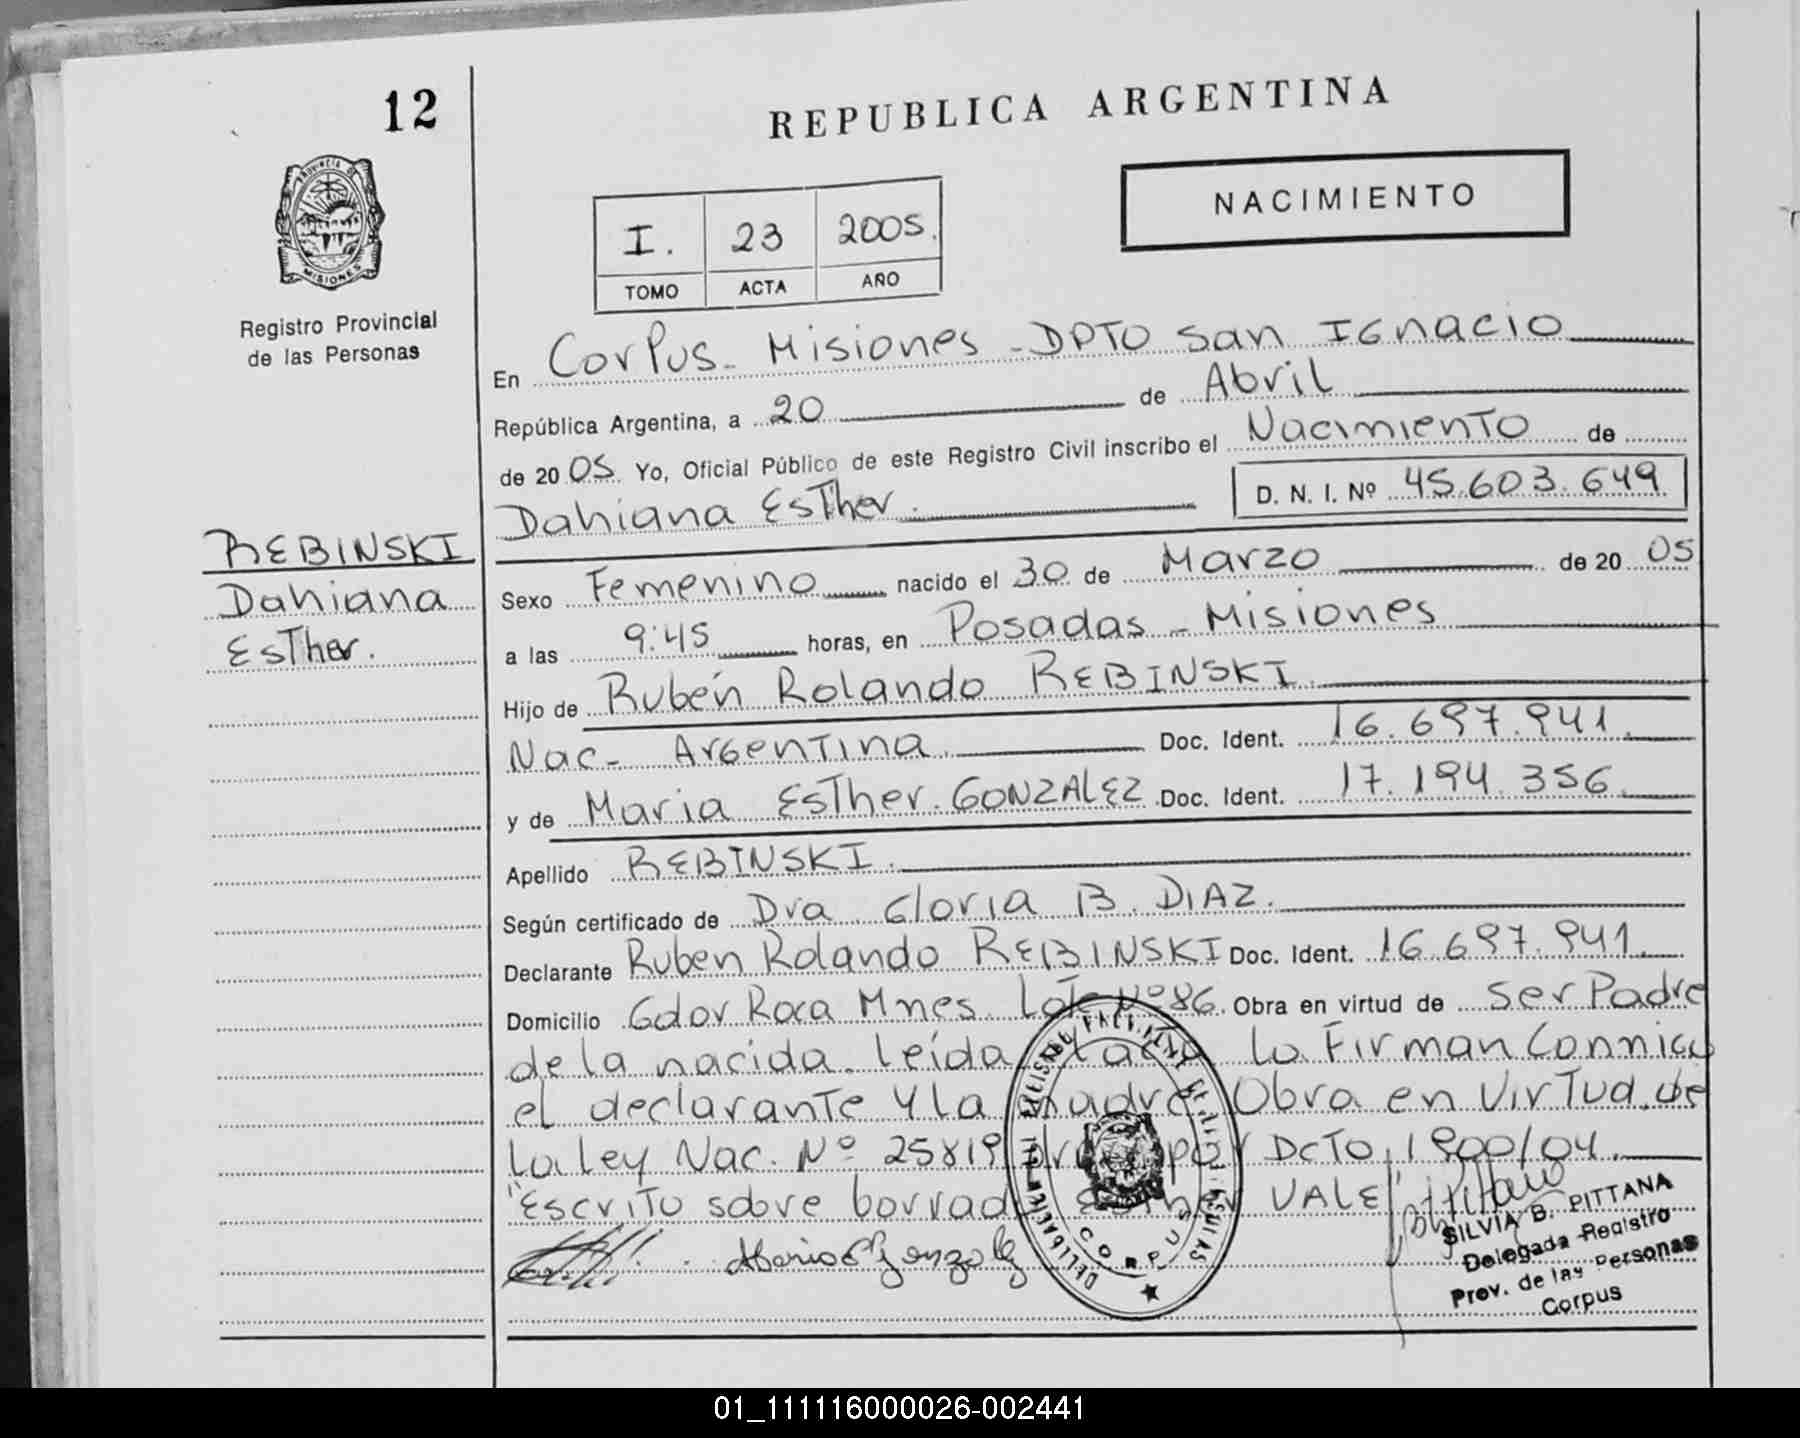 12
REPUBLICA ARGENTINA
PROVINCIA DE
MISIONES
NACIMIENTO
I. 23 2005.
TOMO ACTA AÑO
Registro Provincial
de las Personas
En Corpus - Misiones - DPTO San Ignacio
República Argentina, a 20 de Abril
de 20 05 Yo, Oficial Público de este Registro Civil inscribo el Nacimiento de
Dahiana Esther. D. N. I. Nº 45.603.649
REBINSKI
Dahiana
Esther.
Sexo Femenino nacido el 30 de Marzo de 20 05
a las 9:45 horas, en Posadas - Misiones
Hijo de Rubén Rolando REBINSKI
Nac- Argentina. Doc. Ident. 16.697.941.
y de Maria Esther GONZALEZ Doc. Ident. 17.194.356
Apellido REBINSKI.
Según certificado de Dra Gloria B. DIAZ.
Declarante Ruben Rolando REBINSKI Doc. Ident. 16.697.941
Domicilio Gdor Roca Mnes. Lote Nº 86. Obra en virtud de ser Padre
de la nacida. Leída acta la Firman Conmigo
el declarante y la madre Obra en Virtud de
La Ley Nac. Nº 25819 por DCTO 1900/04.
"Escrito sobre borrado Esther VALE"
Maria E Gonzalez
CORPUS
SILVIA B. PITTANA
Delegada Registro
Prov. de las Personas
Corpus
01_111116000026-002441